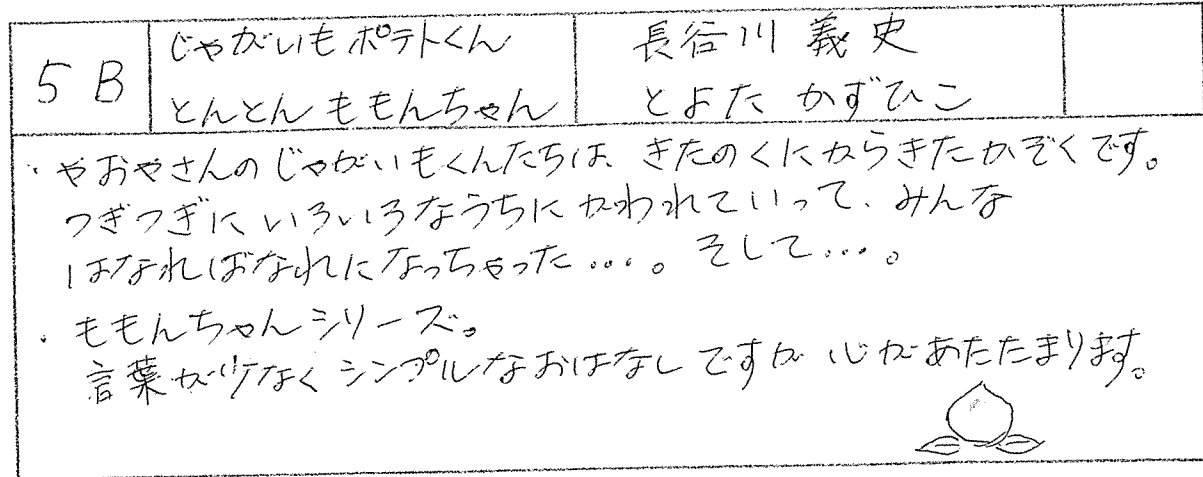 5B
じゃがいもポテトくん
とんとん ももんちゃん
長谷川 義史
とよた かずひこ
・やおやさんのじゃがいもくんたちは、きたのくにからきたかぞくです。
つぎつぎにいろいろなうちにかわれていって、みんな
はなればなれになっちゃった…。そして…。
・ももんちゃんシリーズ。
言葉が少なくシンプルなおはなしですが心があたたまります。